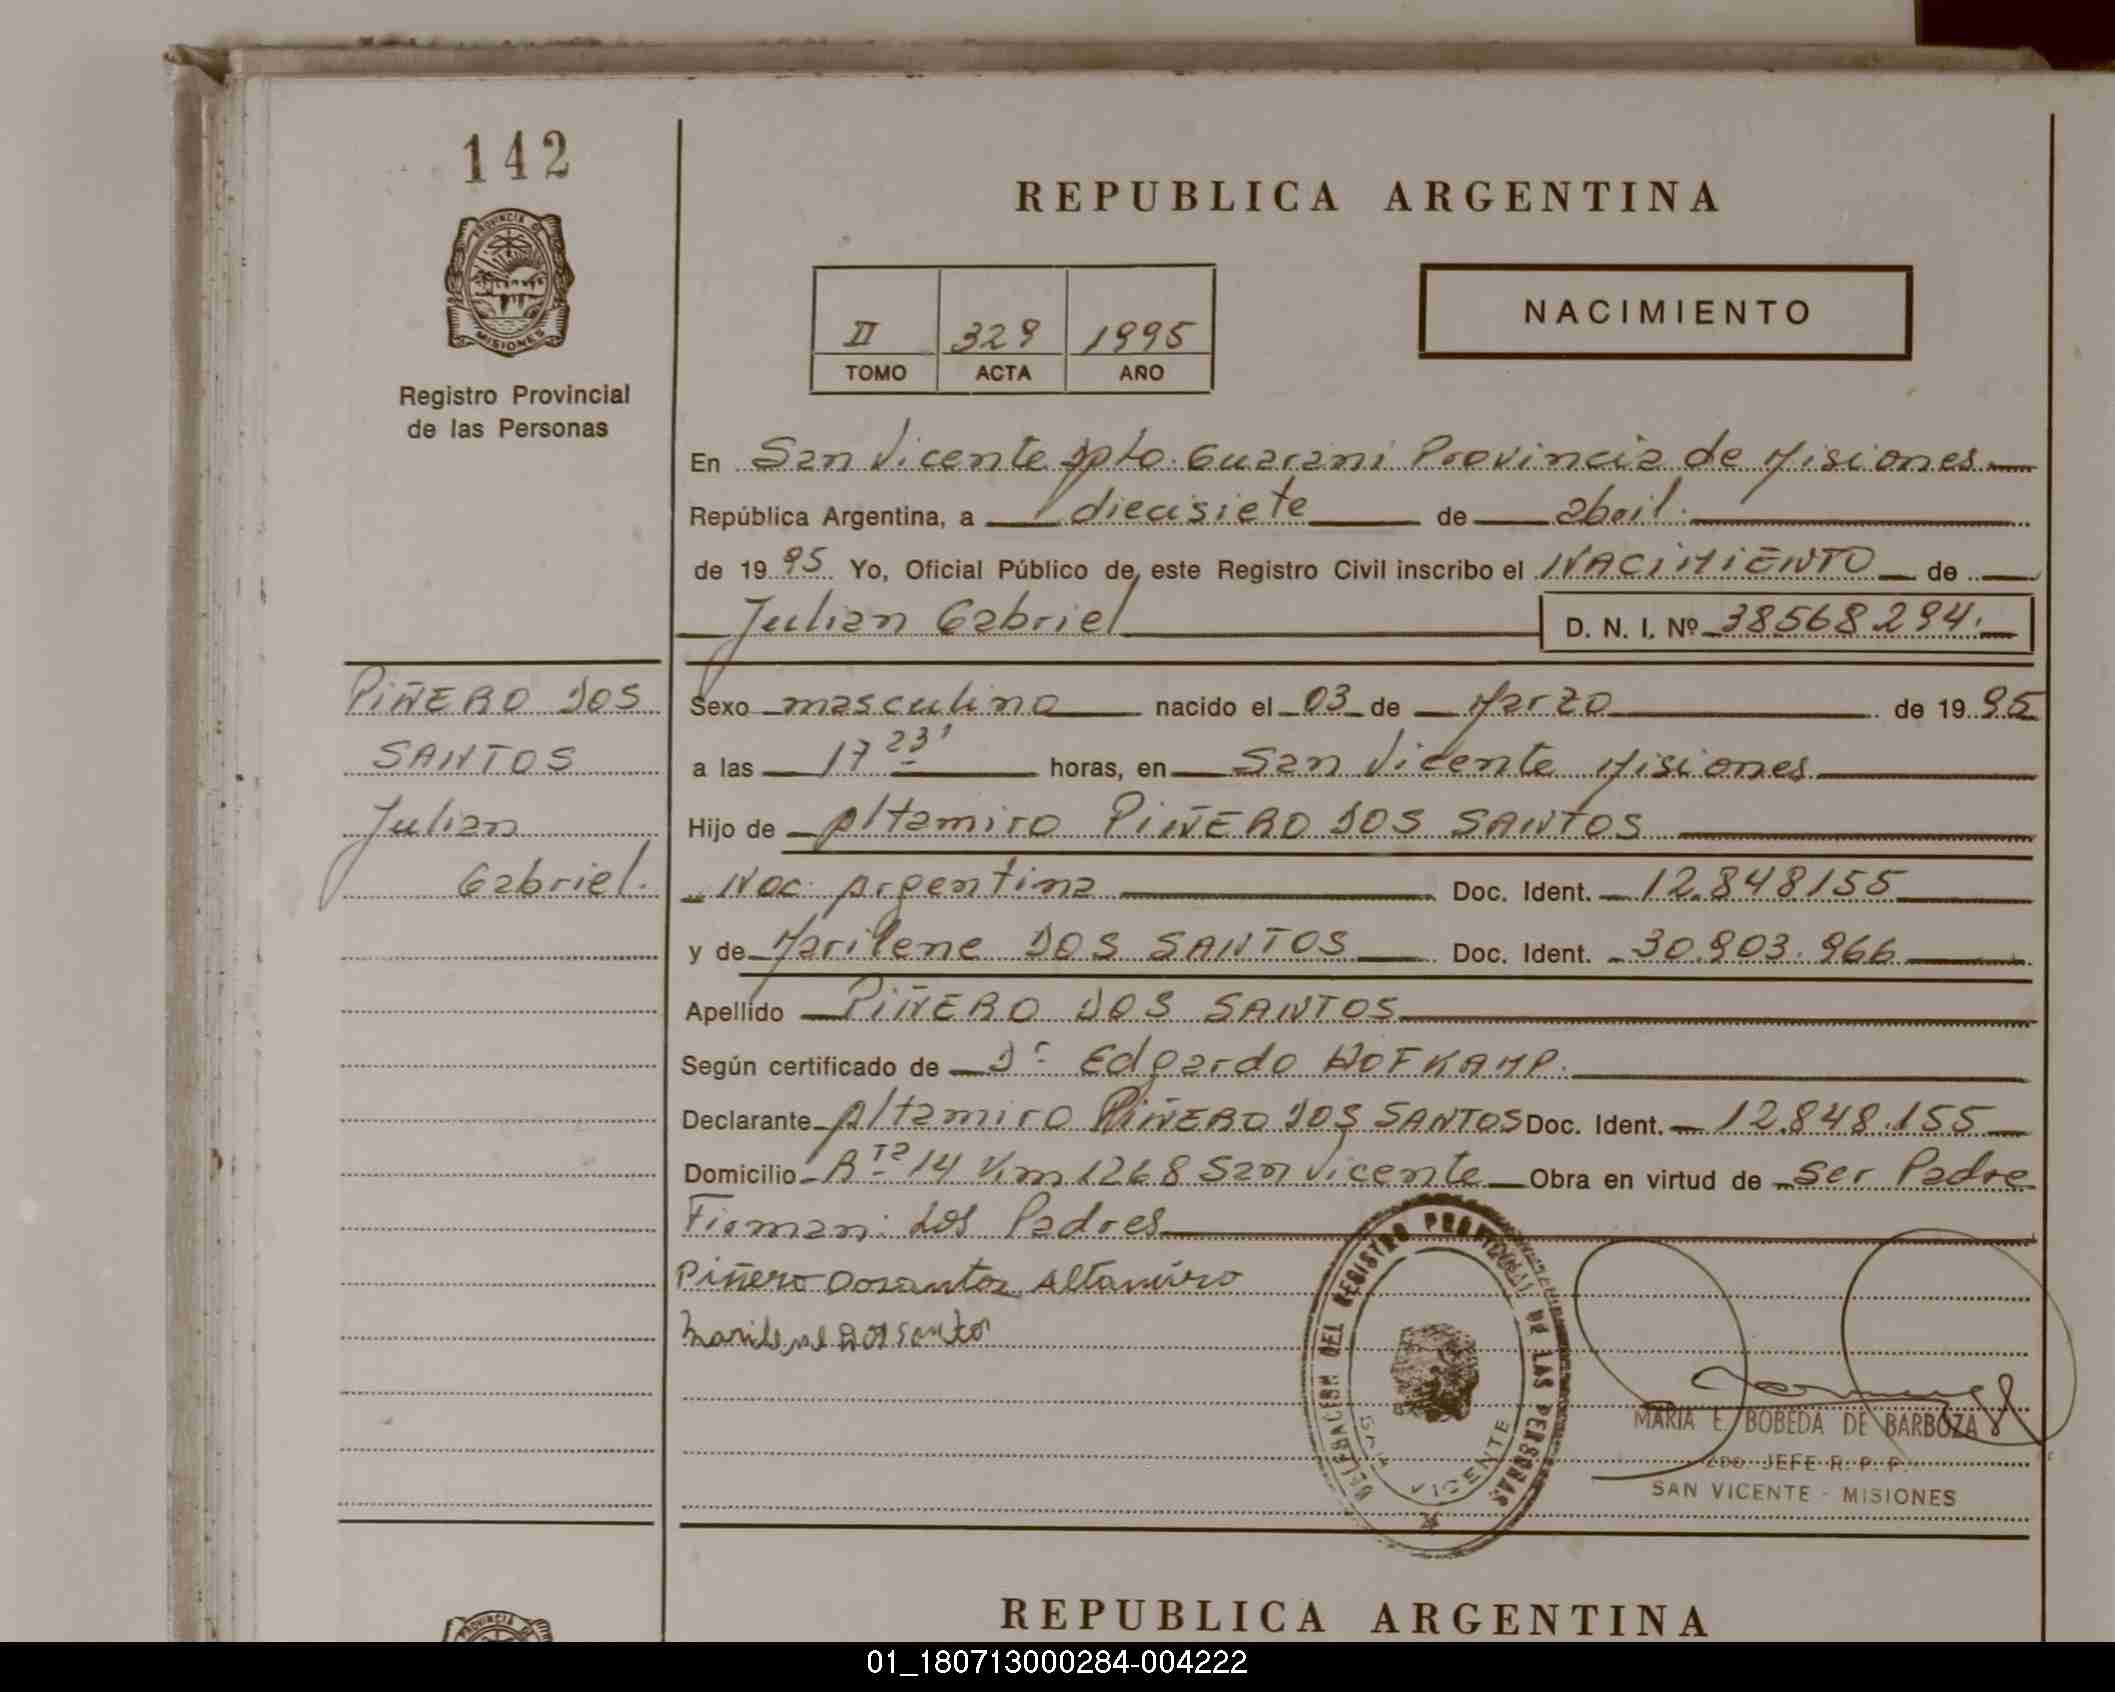 142
PROVINCIA DE
MISIONES
Registro Provincial
de las Personas
REPUBLICA ARGENTINA
II 329 1995
TOMO ACTA AÑO
NACIMIENTO
En San Vicente Dpto. Guarani Provincia de Misiones
República Argentina, a diecisiete de abril.
de 1995 Yo, Oficial Público de este Registro Civil inscribo el NACIMIENTO de
Julian Gabriel D. N. I. Nº 38568294.
PIÑERO DOS
SANTOS
Julian
Gabriel.
Sexo masculino nacido el 03 de Marzo de 1995
a las 17 23' horas, en San Vicente Misiones
Hijo de Altamiro PIÑERO DOS SANTOS
Nac. Argentina Doc. Ident. 12.848155
y de Marilene DOS SANTOS Doc. Ident. 30.903.966
Apellido PIÑERO DOS SANTOS
Según certificado de Dr Edgardo HOFKAMP.
Declarante Altamiro PIÑERO DOS SANTOS Doc. Ident. 12.848.155
Domicilio Rta 14 Km 1268 San Vicente Obra en virtud de ser Padre
Firman: Los Padres
Piñero Dosantos Altamiro
Marilene Dos Santo
DELEGACION DEL REGISTRO PROVINCIAL DE LAS PERSONAS
SAN VICENTE
MARIA E. BOBEDA DE BARBOZA
2do JEFE R. P. P.
SAN VICENTE - MISIONES
REPUBLICA ARGENTINA
01_180713000284-004222